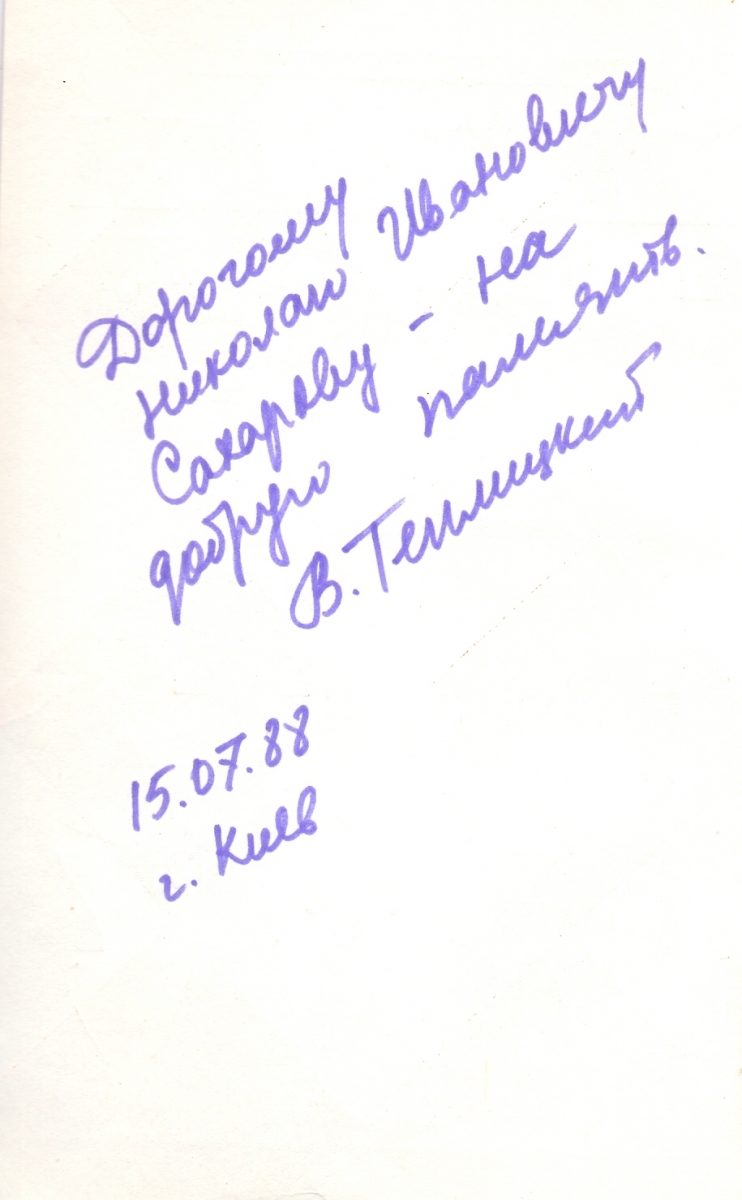 Дорогому
Николаю Ивановичу
Сахарову - на
добрую память.
В. Теплицкий
15.07.88
г. Киев